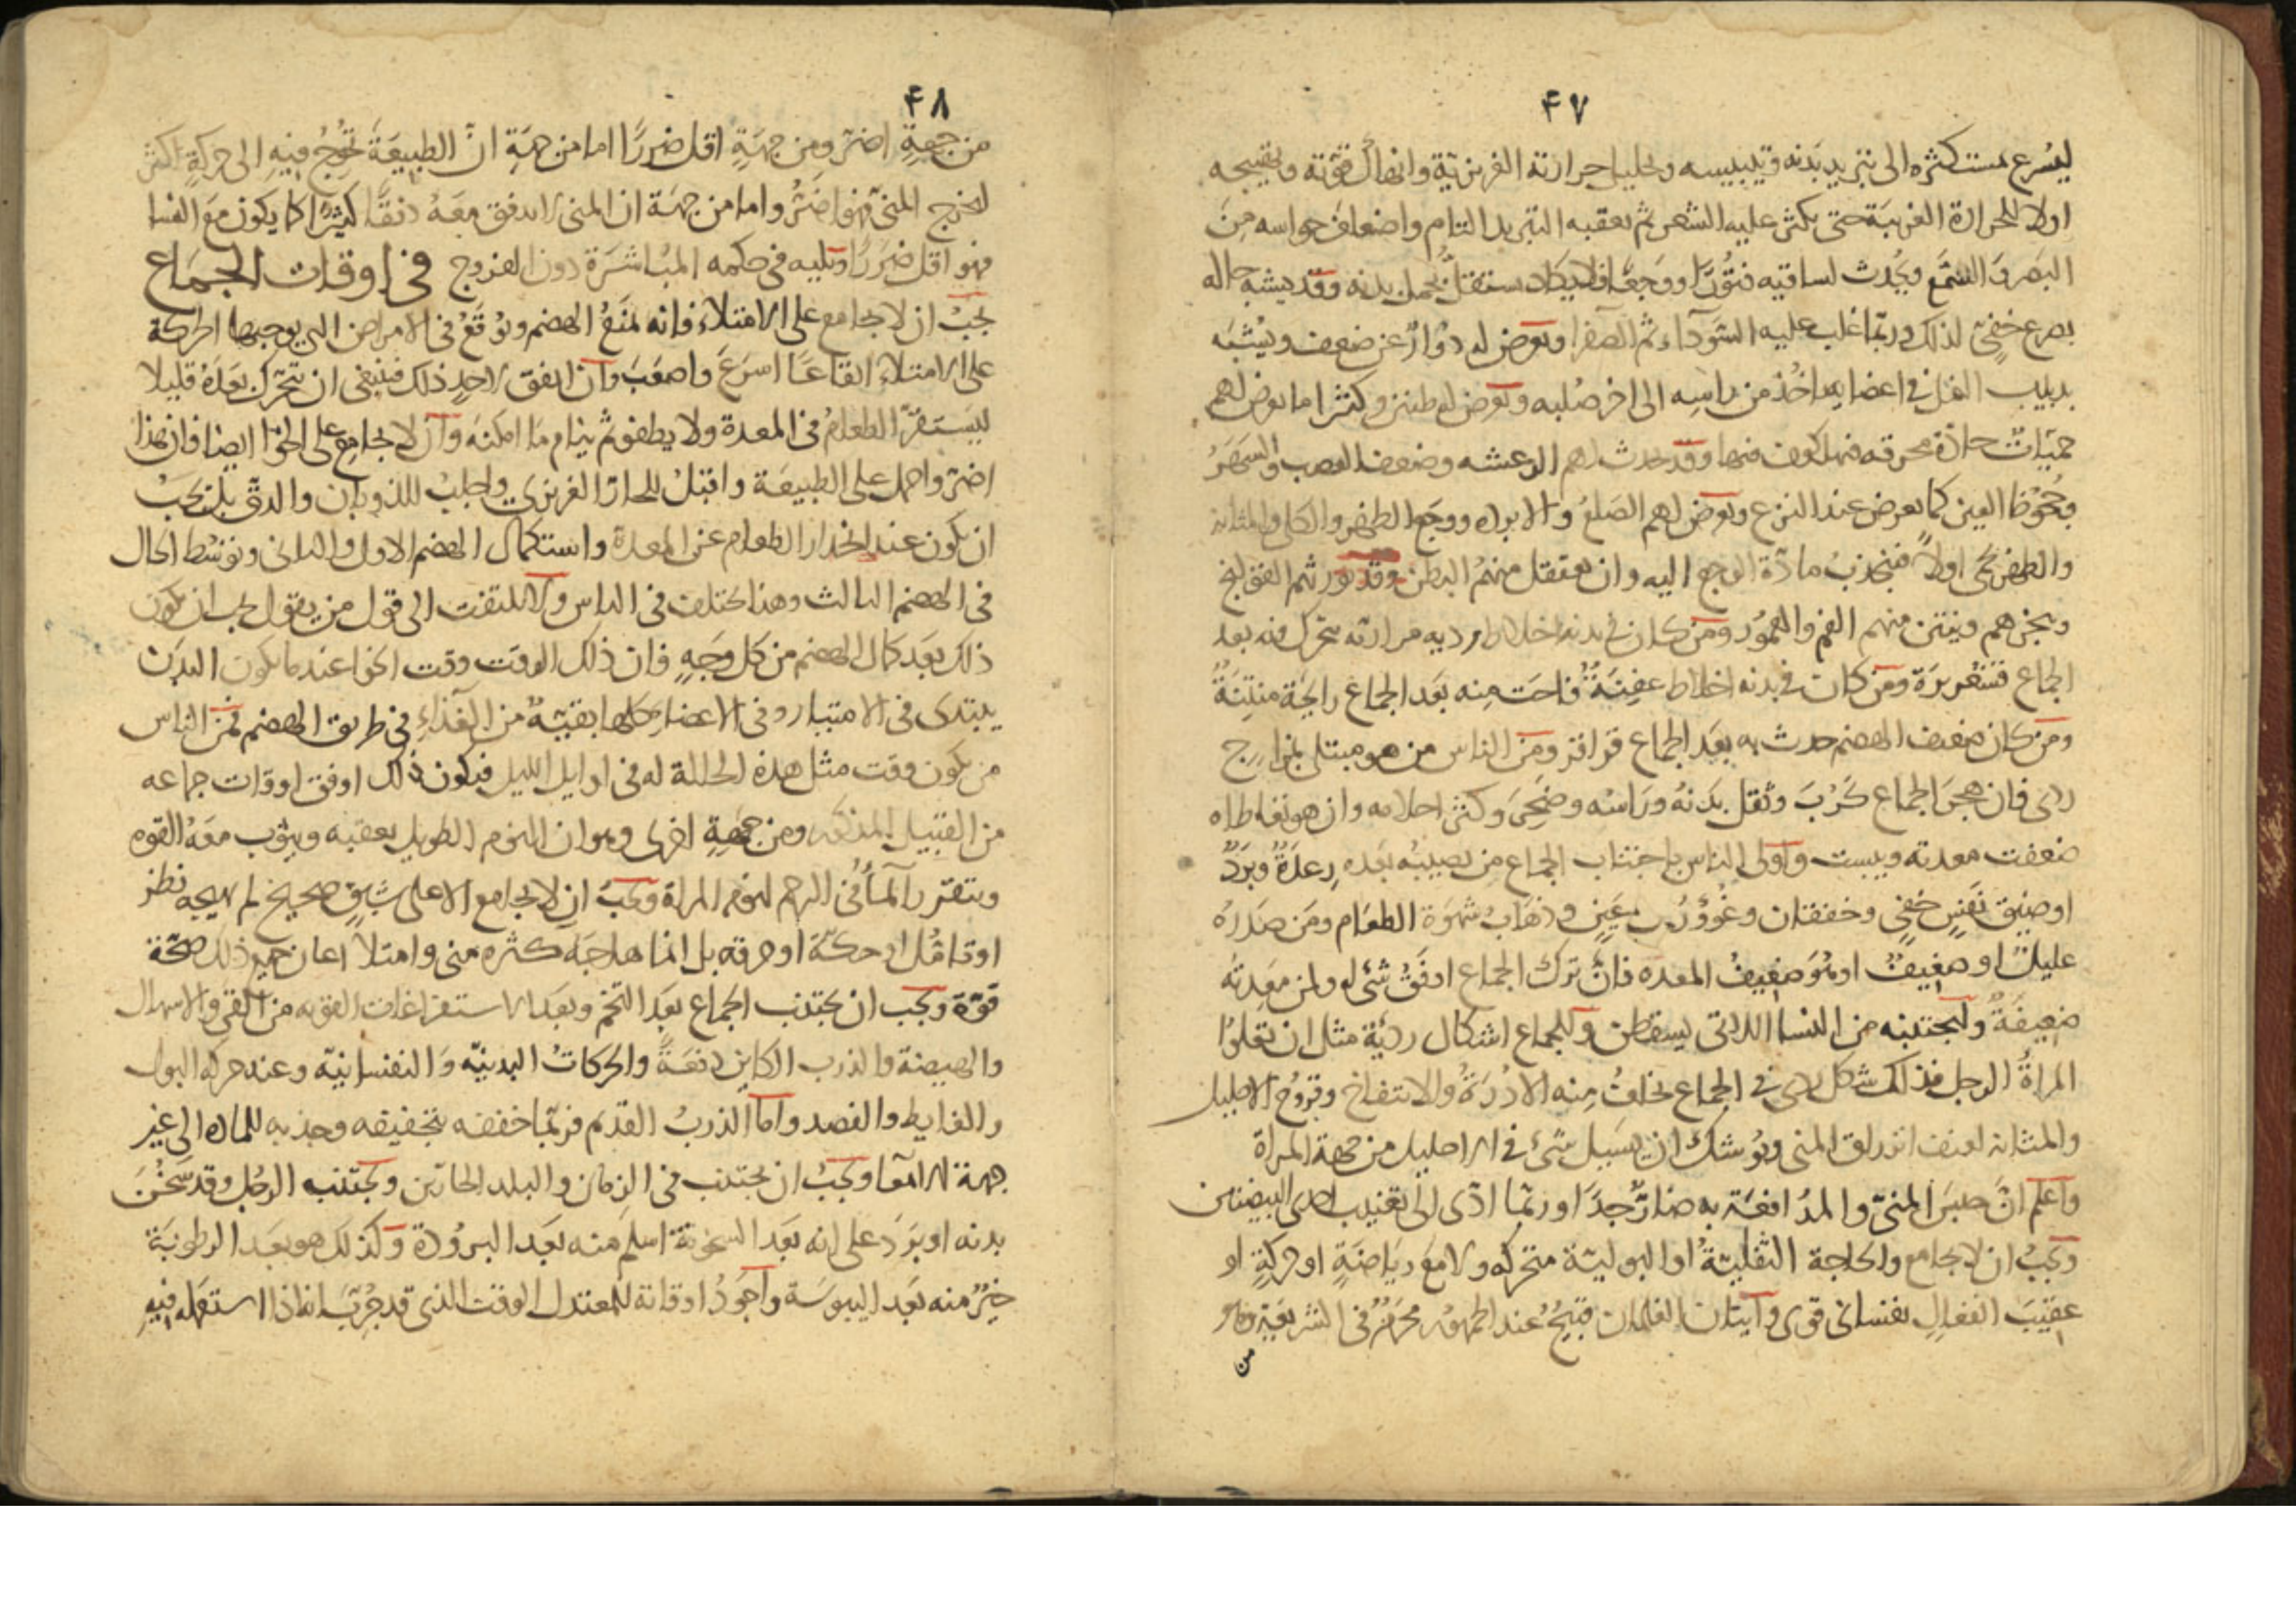 ٤٧
ليسرع مستكثره الى تبريد بدنه وتيبيسه وتحليل حرارته الغريزية وانهاك قوته وتهييجه
اولا للحرارة الغريبة حتى يكثر عليه الشعر ثم يعقبه التبريد التام واضعاف حواسه من
البصر والسمع ويحدث لساقيه فتورا ووجعا فلا يكاد يستقل بحمل بدنه وقد يشبه حاله
بصرع خفي لذلك وربما غلب عليه السوداء ثم الصفرا ويعرض له دوار عن ضعف ويشبه
بدبيب النمل في اعضايه ياخذ من راسه الى اخر صلبه ويعرض له طنين وكثيرا ما يعرض لهم
حميات حادة محرقة فيهلكون فيها وقد يحدث لهم الرعشه وضعف العصب والسهر
وجحوظ العين كما يعرض عند النزع ويعرض لهم الصلع والابرده ووجع الظهر والكلى والمثانه
والظهر يحمى اولا فتجذب مادة الوجع اليه وان يعتقل منهم البطن وقد يورثهم القولنج
وبخرهم وينتن منهم الفم والعمور ومن كان في بدنه اخلاط رديه مراريه تحرك منه بعد
الجماع قشعريرة ومن كان في بدنه اخلاط عفنة فاحت منه بعد الجماع رايحة منتنة
ومن كان ضعيف الهضم حدث به بعد الجماع قراقر ومن الناس من هو مبتلى بمزاج
ردى فان هجر الجماع كرب وثقل بدنه وراسه وضجر وكثر احلامه وان هو تعاطاه
ضعفت معدته ويبست واولى الناس باجتناب الجماع من يصيبه بعده رعدة وبرد
او ضيق نفس خفي وخفقان وغوور عين وذهاب شهوة الطعام ومن صدره
عليل او ضعيف او هو ضعيف المعده فان ترك الجماع اوفق شى له ولمن معدته
ضعيفة وليجتنبه من النسا اللاتي يسقطن وللجماع اشكال ردية مثل ان تعلوا
المراة الرجل فذلك شكل ردى في الجماع يخاف منه الادرة والانتفاخ وقروح الاحليل
والمثانه لعنف انزلاق المني ويوشك ان يسيل شئ في الاحليل من جهة المراة
واعلم ان حبس المني والمدافعة به ضار جدا وربما ادى الى تعييب احدى البيضتين
ويجب ان لا يجامع والحاجة الثفلية او البولية متحركه ولا مع رياضة او حركة او
عقيب انفعال نفساني قوى واتيان الغلمان قبيح عند الجمهور محرم في الشريعة وهو
من
٤٨
من جهة اضر ومن جهة اقل ضررا اما من جهة ان الطبيعة تحوج فيه الى حركة اكثر
ليخرج المني فهو اضر واما من جهة ان المني لا يندفق معه دفقا كثيرا كما يكون مع النسا
فهو اقل ضررا ويليه في حكمه المباشرة دون الفروج في اوقات الجماع
يجب ان لا يجامع على الامتلاء فانه يمنع الهضم ويوقع في الامراض التي يوجبها الحركة
على الامتلاء ايقاعا اسرع واصعب وان اتفق لاحد ذلك فينبغي ان يتحرك بعده قليلا
ليستقر الطعام في المعدة ولا يطفو ثم ينام ما امكنه وان لا يجامع على الخوا ايضا فان هذا
اضر واحمل على الطبيعة واقتل للحار الغريزي واجلب للذوبان والدق بل يجب
ان يكون عند انحدار الطعام عن المعدة واستكمال الهضم الاول والثاني وتوسط الحال
في الهضم الثالث وهذا يختلف في الناس ولا يلتفت الى قول من يقول يجب ان يكون
ذلك بعد كمال الهضم من كل وجه فان ذلك الوقت وقت الخوا عند ما يكون البدن
يبتدى في الامتيار وفي الاعضا كلها بقية من الغذاء في طريق الهضم فمن الناس
من يكون وقت مثل هذه الحالة له في اوايل الليل فيكون ذلك اوفق اوقات جماعه
من القبيل المذكور ومن جهة اخرى وهو ان النوم الطويل يعقبه ويثوب معه القوه
ويتقرر الما في الرحم لنوم المراة ويجب ان لا يجامع الا على شبق صحيح لم يهيجه نظر
او تامل او حكة او حرقه بل انما هاجه كثره مني وامتلا اعان جميع ذلك صحة
قوة ويجب ان يجتنب الجماع بعد التخم وبعد الاستفراغات القويه من القى والاسهال
والهيضة والذرب الكاين دفعة والحركات البدنية والنفسانية وعند حركه البول
والغايط والفصد واما الذرب القديم فربما خففه بتجفيفه وجذبه للماده الى غير
جهة الامعا ويجب ان يجتنب في الزمان والبلد الحارين ويجتنبه الرجل وقد سخن
بدنه او برد على انه بعد السخونة اسلم منه بعد البرودة وكذلك هو بعد الرطوبة
خير منه بعد اليبوسة واجود اوقاته للمعتدل الوقت الذي قد جرب انه اذا استعمله فيه